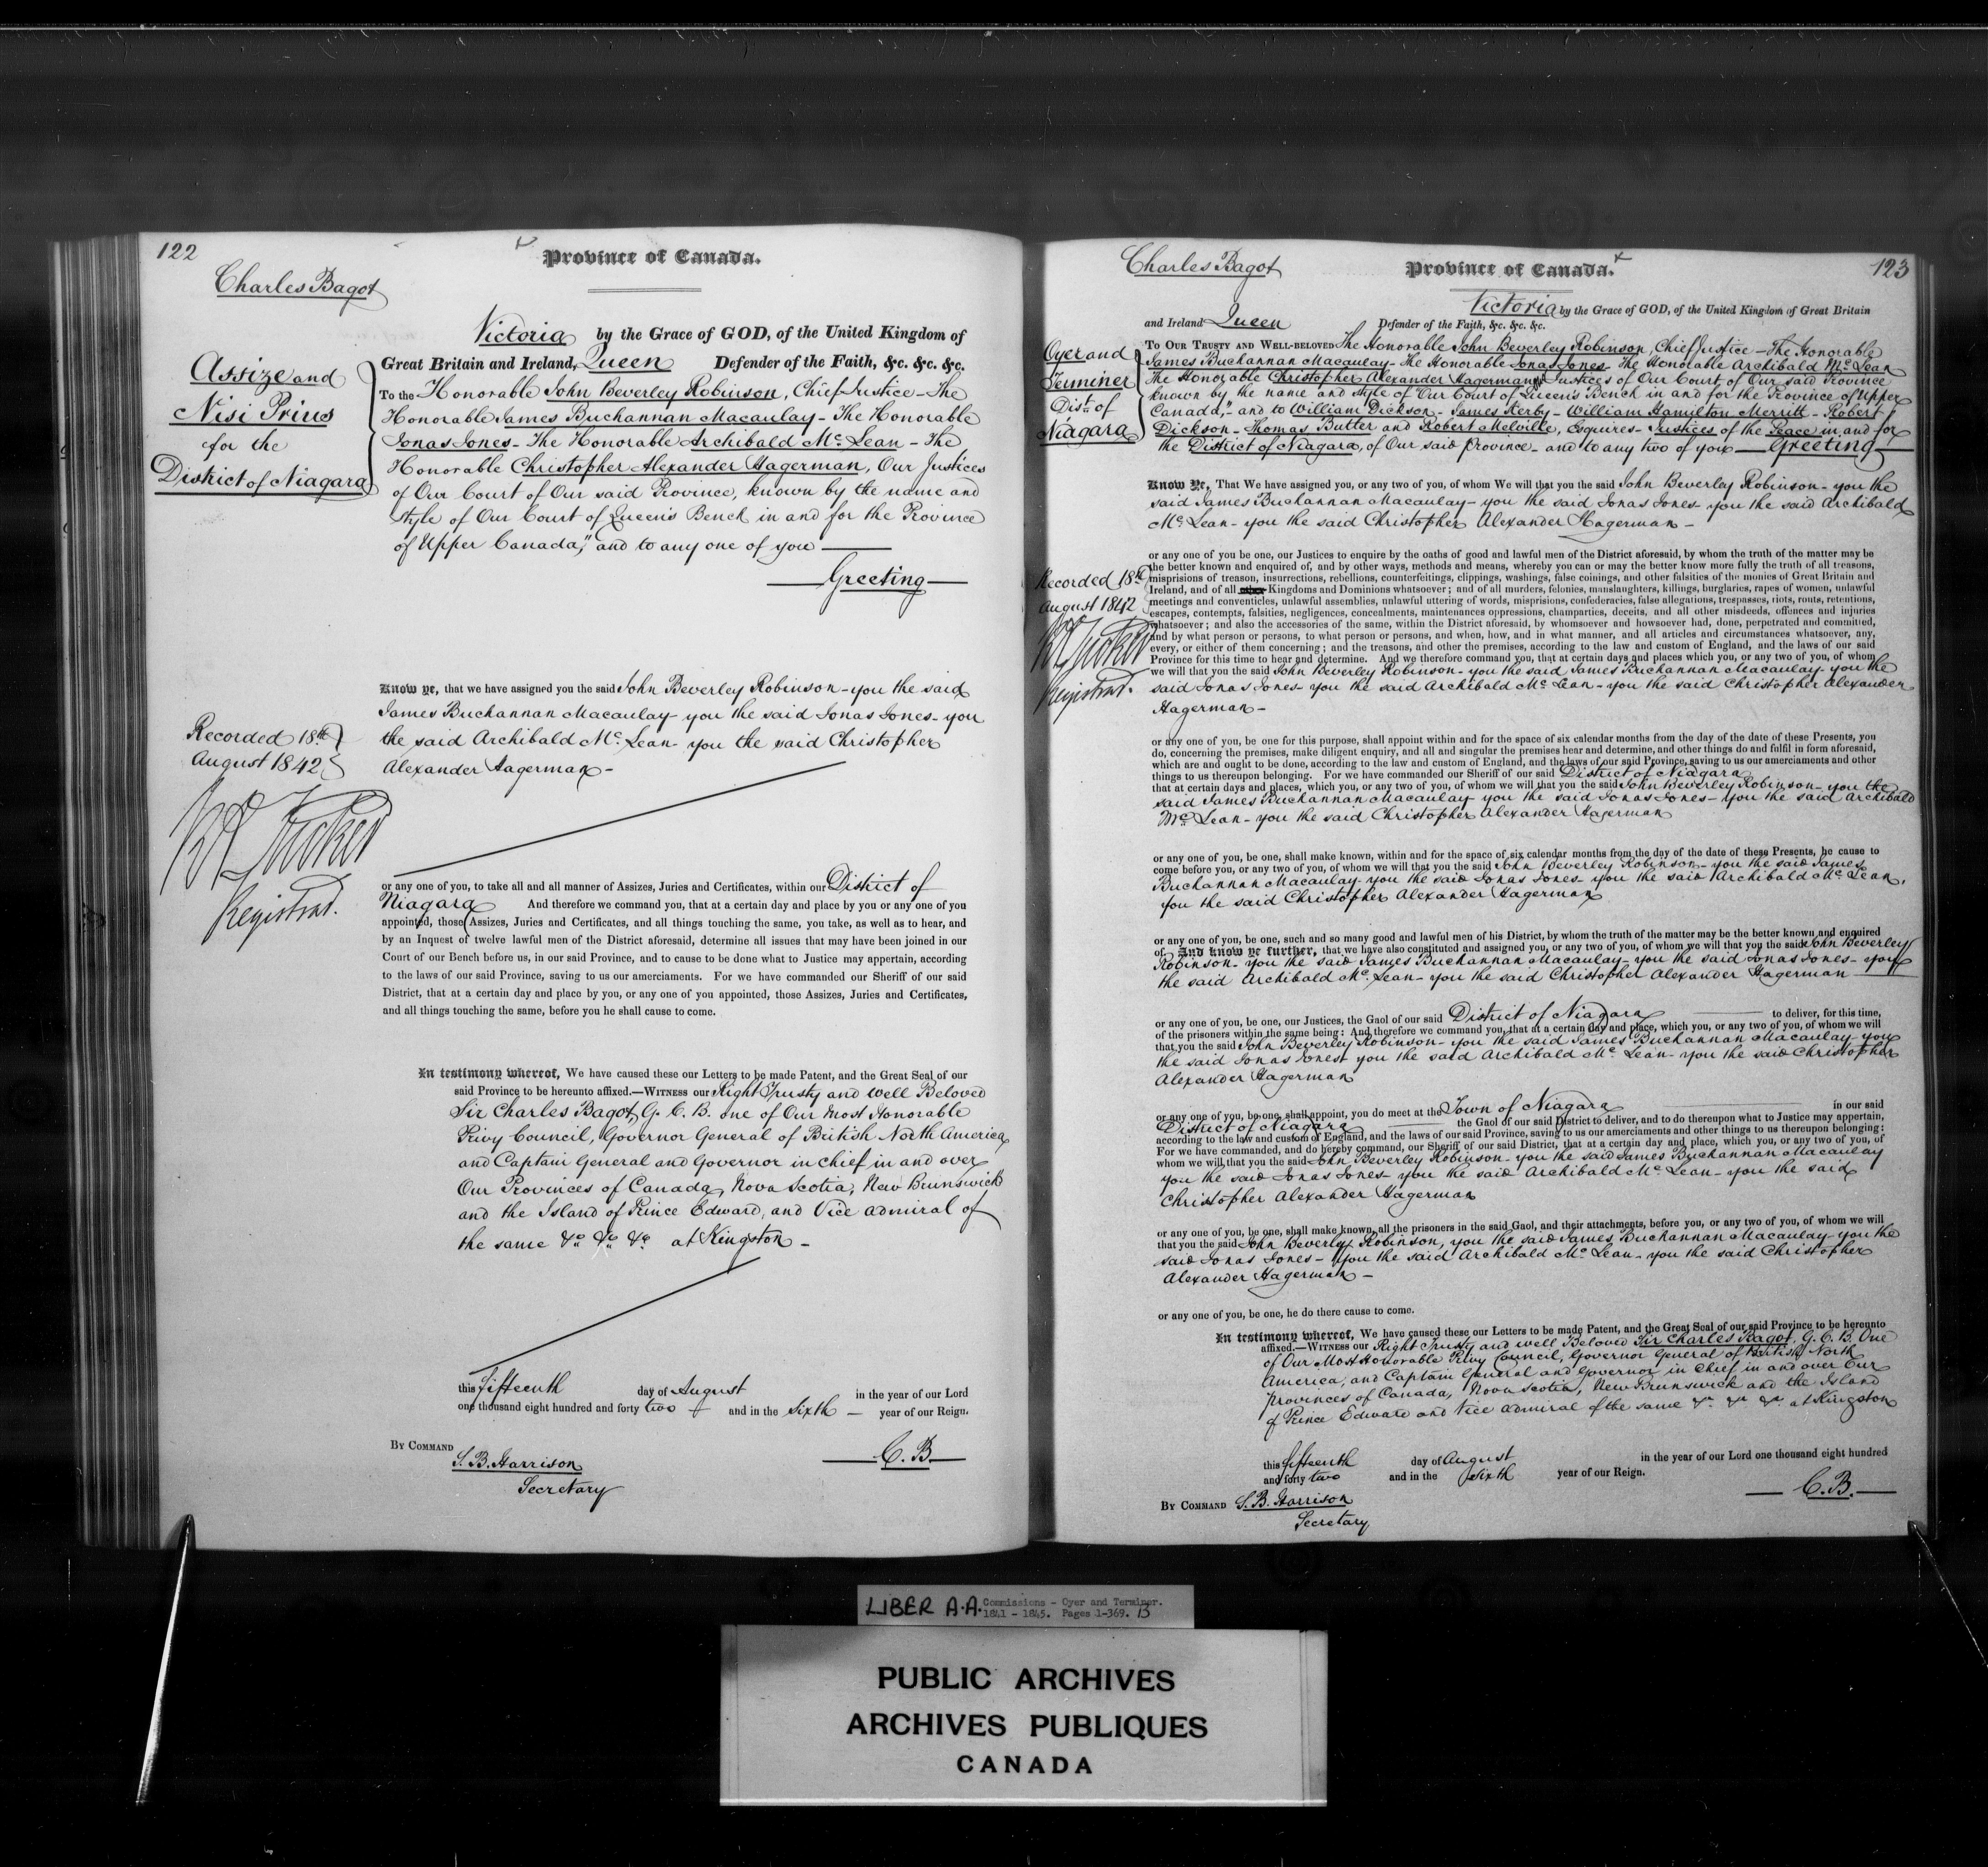 122
Province of Canada.
Charles Bagot
Victoria by the Grace of GOD, of the United Kingdom of
Great Britain and Ireland, Queen Defender of the Faith, &c. &c. &c.
Assize and
Nisi Prius
for the
District of Niagara
To the Honorable John Beverley Robinson, Chief Justice - The
Honorable James Buchannan Macaulay - The Honorable
Jonas Jones - The Honorable Archibald Mc Lean - The
Honorable Christopher Alexander Hagerman, Our Justices
of Our Court of Our said Province, known by the name and
style of Our Court of Queen's Bench in and for the Province
of Upper Canada," and to any one of you
Greeting
Know ye, that we have assigned you the said John Beverley Robinson - you the said
James Buchannan Macaulay - you the said Jonas Jones - you
the said Archibald Mc Lean - you the said Christopher
Alexander Hagerman -
Recorded 18th
August 1842
Registrar.
or any one of you, to take all and all manner of Assizes, Juries and Certificates, within our District of
Niagara And therefore we command you, that at a certain day and place by you or any one of you
appointed, those Assizes, Juries and Certificates, and all things touching the same, you take, as well as to hear, and
by an Inquest of twelve lawful men of the District aforesaid, determine all issues that may have been joined in our
Court of our Bench before us, in our said Province, and to cause to be done what to Justice may appertain, according
to the laws of our said Province, saving to us our amerciaments. For we have commanded our Sheriff of our said
District, that at a certain day and place by you, or any one of you appointed, those Assizes, Juries and Certificates,
and all things touching the same, before you he shall cause to come.
In testimony whereof, We have caused these our Letters to be made Patent, and the Great Seal of our
said Province to be hereunto affixed.—WITNESS our Right Trusty and Well Beloved
Sir Charles Bagot, G. C. B. one of Our Most Honorable
Privy Council, Governor General of British North America
and Captain General and Governor in Chief in and over
Our Provinces of Canada, Nova Scotia, New Brunswick
and the Island of Prince Edward, and Vice Admiral of
the same &c &c &c at Kingston -
this fifteenth day of August in the year of our Lord
one thousand eight hundred and forty two and in the sixth year of our Reign.
BY COMMAND
S. B. Harrison
Secretary
C. B.
123
Charles Bagot
Province of Canada.
Victoria by the Grace of GOD, of the United Kingdom of Great Britain
and Ireland Queen Defender of the Faith, &c. &c. &c.
Oyer and
Terminer
Dist. of
Niagara
TO OUR TRUSTY AND WELL-BELOVED The Honorable John Beverley Robinson, Chief Justice - The Honorable
James Buchannan Macaulay - The Honorable Jonas Jones - The Honorable Archibald Mc Lean
The Honorable Christopher Alexander Hagerman Justices of Our Court of Our said Province
known by the name and style of Our Court of Queen's Bench in and for the Province of Upper
Canada," - and to William Dickson - James Kerby - William Hamilton Merritt - Robert
Dickson - Thomas Butler and Robert Melville, Esquires - Justices of the Peace in and for
the District of Niagara, of Our said Province - and to any two of you Greeting
Know Ye, That We have assigned you, or any two of you, of whom We will that you the said John Beverley Robinson - you the
said James Buchannan Macaulay - you the said Jonas Jones - you the said Archibald
Mc Lean - you the said Christopher Alexander Hagerman -
or any one of you be one, our Justices to enquire by the oaths of good and lawful men of the District aforesaid, by whom the truth of the matter may be
the better known and enquired of, and by other ways, methods and means, whereby you can or may the better know more fully the truth of all treasons,
misprisions of treason, insurrections, rebellions, counterfeitings, clippings, washings, false coinings, and other falsities of the monies of Great Britain and
Ireland, and of all other Kingdoms and Dominions whatsoever; and of all murders, felonies, manslaughters, killings, burglaries, rapes of women, unlawful
meetings and conventicles, unlawful assemblies, unlawful uttering of words, misprisions, confederacies, false allegations, trespasses, riots, routs, retentions,
escapes, contempts, falsities, negligences, concealments, maintenances oppressions, champarties, deceits, and all other misdeeds, offences and injuries
whatsoever; and also the accessories of the same, within the District aforesaid, by whomsoever and howsoever had, done, perpetrated and committed,
and by what person or persons, to what person or persons, and when, how, and in what manner, and all articles and circumstances whatsoever, any,
every, or either of them concerning; and the treasons, and other the premises, according to the law and custom of England, and the laws of our said
Province for this time to hear and determine. And we therefore command you, that at certain days and places which you, or any two of you, of whom
we will that you the said John Beverley Robinson - you the said James Buchannan Macaulay - you the
said Jonas Jones - you the said Archibald Mc Lean - you the said Christopher Alexander
Hagerman -
Recorded 18th
August 1842
Registrar.
or any one of you, be one for this purpose, shall appoint within and for the space of six calendar months from the day of the date of these Presents, you
do, concerning the premises, make diligent enquiry, and all and singular the premises hear and determine, and other things do and fulfil in form aforesaid,
which are and ought to be done, according to the law and custom of England, and the laws of our said Province, saving to us our amerciaments and other
things to us thereupon belonging. For we have commanded our Sheriff of our said District of Niagara
that at certain days and places, which you, or any two of you, of whom we will that you the said John Beverley Robinson - you the
said James Buchannan Macaulay - you the said Jonas Jones - you the said Archibald
Mc Lean - you the said Christopher Alexander Hagerman
or any one of you, be one, shall make known, within and for the space of six calendar months from the day of the date of these Presents, he cause to
come before you, or any two of you, of whom we will that you the said John Beverley Robinson - you the said James
Buchannan Macaulay - you the said Jonas Jones - you the said Archibald Mc Lean,
you the said Christopher Alexander Hagerman
or any one of you, be one, such and so many good and lawful men of his District, by whom the truth of the matter may be the better known and enquired
of. And know ye further, that we have also constituted and assigned you, or any two of you, of whom we will that you the said John Beverley
Robinson - you the said James Buchannan Macaulay - you the said Jonas Jones - you
the said Archibald Mc Lean - you the said Christopher Alexander Hagerman
or any one of you, be one, our Justices, the Gaol of our said District of Niagara to deliver, for this time,
of the prisoners within the same being: And therefore we command you, that at a certain day and place, which you, or any two of you, of whom we will
that you the said John Beverley Robinson - you the said James Buchannan Macaulay - you
the said Jonas Jones - you the said Archibald Mc Lean - you the said Christopher
Alexander Hagerman
or any one of you, be one, shall appoint, you do meet at the Town of Niagara in our said
District of Niagara the Gaol of our said District to deliver, and to do thereupon what to Justice may appertain,
according to the law and custom of England, and the laws of our said Province, saving to us our amerciaments and other things to us thereupon belonging:
For we have commanded, and do hereby command, our Sheriff of our said District, that at a certain day and place, which you, or any two of you, of
whom we will, that you the said John Beverley Robinson - you the said James Buchannan Macaulay
you the said Jonas Jones - you the said Archibald Mc Lean - you the said
Christopher Alexander Hagerman
or any one of you, be one, shall make known, all the prisoners in the said Gaol, and their attachments, before you, or any two of you, of whom we will
that you the said John Beverley Robinson, you the said James Buchannan Macaulay - you the
said Jonas Jones - you the said Archibald Mc Lean - you the said Christopher
Alexander Hagerman -
or any one of you, be one, he do there cause to come.
In testimony whereof, We have caused these our Letters to be made Patent, and the Great Seal of our said Province to be hereunto
affixed.—WITNESS our Right Trusty and well Beloved Sir Charles Bagot, G. C. B. One
of Our Most Honorable Privy Council, Governor General of British North
America, and Captain General and Governor in Chief in and over Our
Provinces of Canada, Nova Scotia, New Brunswick and the Island
of Prince Edward and Vice Admiral of the same &c &c &c at Kingston
this fifteenth day of August in the year of our Lord one thousand eight hundred
and forty two and in the sixth year of our Reign.
C. B.
BY COMMAND S. B. Harrison
Secretary
LIBER A.A. Commissions - Oyer and Terminer.
1841 - 1845. Pages 1-369. B
PUBLIC ARCHIVES
ARCHIVES PUBLIQUES
CANADA